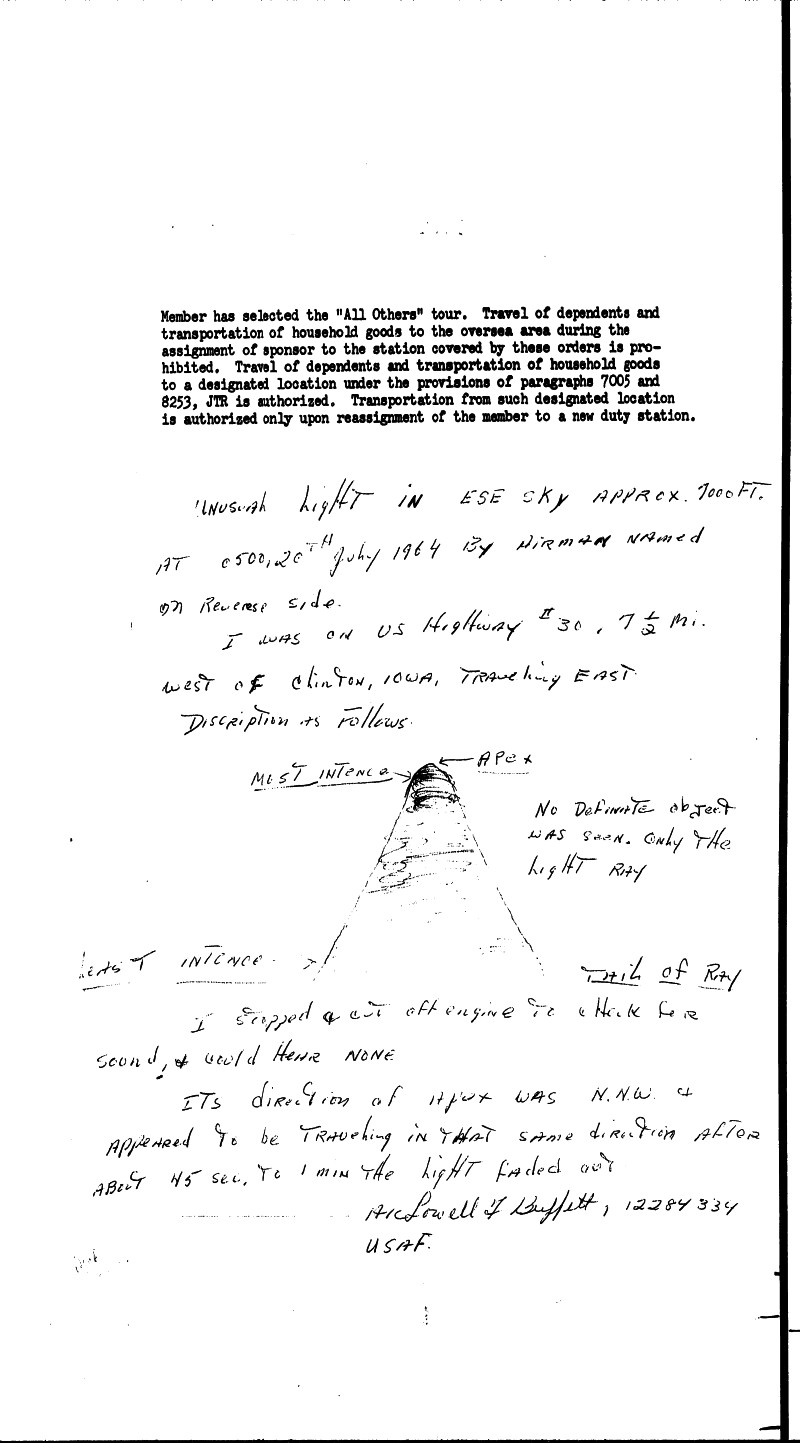 Member has selected the "All Others" tour. Travel of dependents and
transportation of household goods to the oversea area during the
assignment of sponsor to the station covered by these orders is pro-
hibited. Travel of dependents and transportation of household goods
to a designated location under the provisions of paragraphs 7005 and
8253, JTR is authorized. Transportation from such designated location
is authorized only upon reassignment of the member to a new duty station.
UNUSUAL LIGHT IN ESE SKY APPROX. 7000 FT.
AT 0500, 20TH July 1964 By AIRMAN NAMED
on Reverse side.
I WAS ON US HIGHWAY # 30, 7 1/2 Mi.
WEST OF Clinton, IOWA, TRAveling EAST
DISCRIPTION As Follows.
APEX
MOST INTENCE
No DeFiNiTE object
WAS SEEN. ONLY THE
LIGHT RAY
LEAST INTENCE
TAIL of RAY
I stopped & cut off engine To check For
sound, & could HEAR NONE
ITS direction of Apex WAS N.N.W. &
APPEARED To be TRAVELING IN THAT SAME direction AFTER
ABOUT 45 sec, To 1 MIN THE LIGHT FADED out
A1C Lowell Buffett, 12284334
USAF.